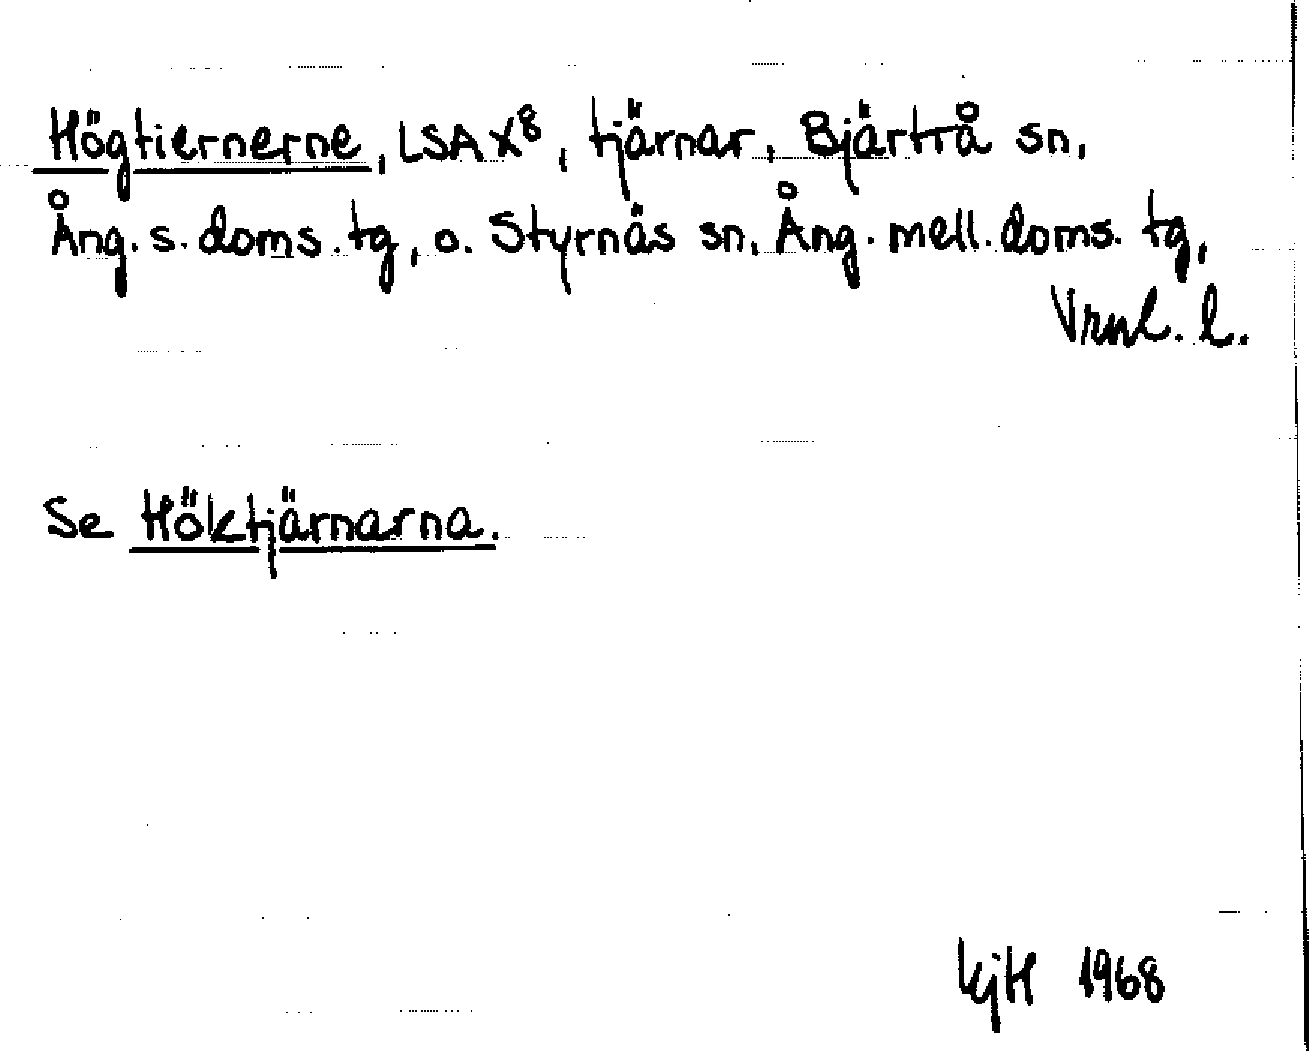 Högtiernerne, LSA X⁸, tjärnar, Bjärtrå sn,
Ång. s. doms. tg, o. Styrnäs sn, Ång. mell. doms. tg,
Vrnl. l.
Se Höktjärnarna.
KjH 1968